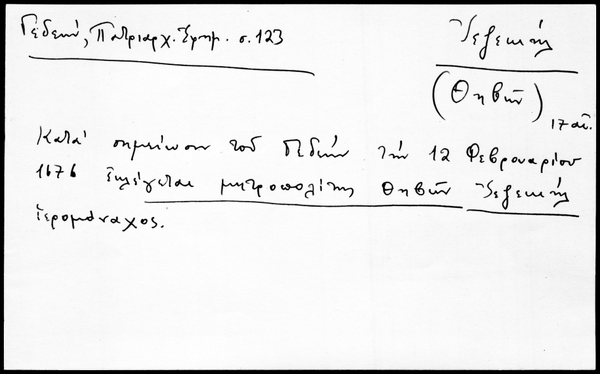 Γεδεών, Πατριαρχ. Ἐφημ. σ. 123
Ἰεζεκιήλ
(Θηβῶν)
17 αἰ.
Κατά σημείωσιν τοῦ Γεδεών τήν 12 Φεβρουαρίου
1676 ἐκλέγεται μητροπολίτης Θηβῶν Ἰεζεκιήλ
ἱερομόναχος.